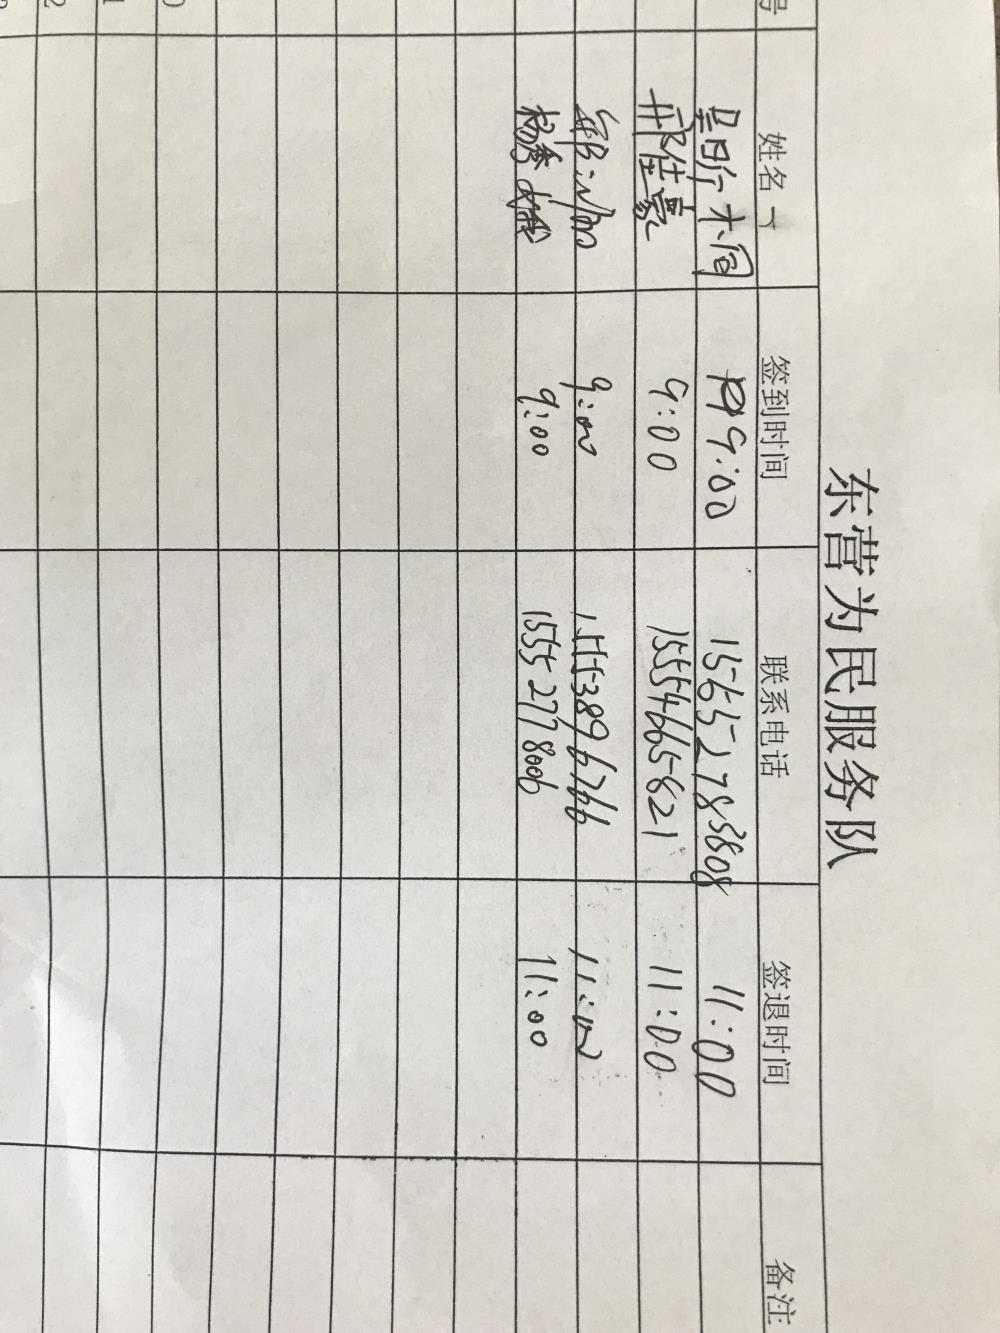 东营为民服务队
号 姓名 签到时间 联系电话 签退时间 备注
9:00 15652783808 11:00
邢佳豪 9:00 15554665821 11:00
9:00 15553896766 11:00
杨秀 9:00 15552778006 11:00